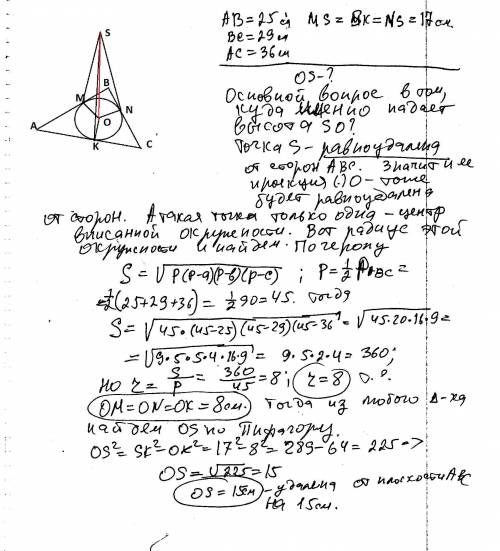 S
B
M
N
O
A
K
C
AB = 25 см MS = SK = NS = 17 см
BC = 29 м
AC = 36 м
OS - ?
Основной вопрос в том,
куда именно падает
высота SO?
Точка S - равноудалена
от сторон ABC. Значит и ее
проекция (·) O - тоже
будет равноудалена
от сторон. А такая точка только одна - центр
вписанной окружности. Вот радиус этой
окружности и найдем. По Герону
S = √P(P-a)(P-b)(P-c) ; P = ½ P_ABC =
= ½(25+29+36) = ½ 90 = 45. Тогда
S = √45·(45-25)(45-29)(45-36) = √45·20·16·9 =
= √9·5·5·4·16·9 = 9·5·2·4 = 360;
Но r = S/P = 360/45 = 8; r = 8
OM = ON = OK = 8 см. Тогда из любого Δ-ка
найдем OS по Пифагору.
OS² = SK² - OK² = 17² - 8² = 289 - 64 = 225 =>
OS = √225 = 15
OS = 15 см - удалена от плоскости ABC
на 15 см.